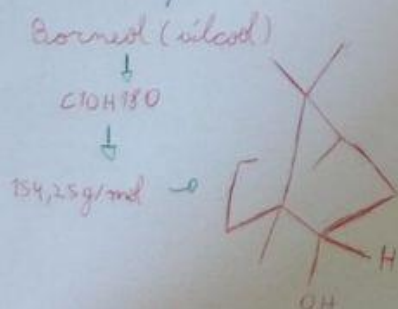 Borneol (álcool)
C10H18O
154,25g/mol
H
OH